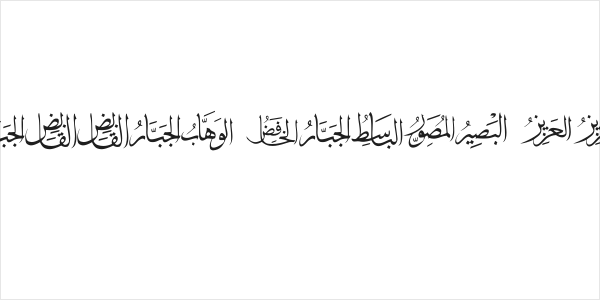 العَزِيزُ البَصِيرُ المُصَوِّرُ البَاسِطُ الجَبَّارُ الخَافِضُ الوَهَّابُ الجَبَّارُ القَابِضُ القَابِضُ